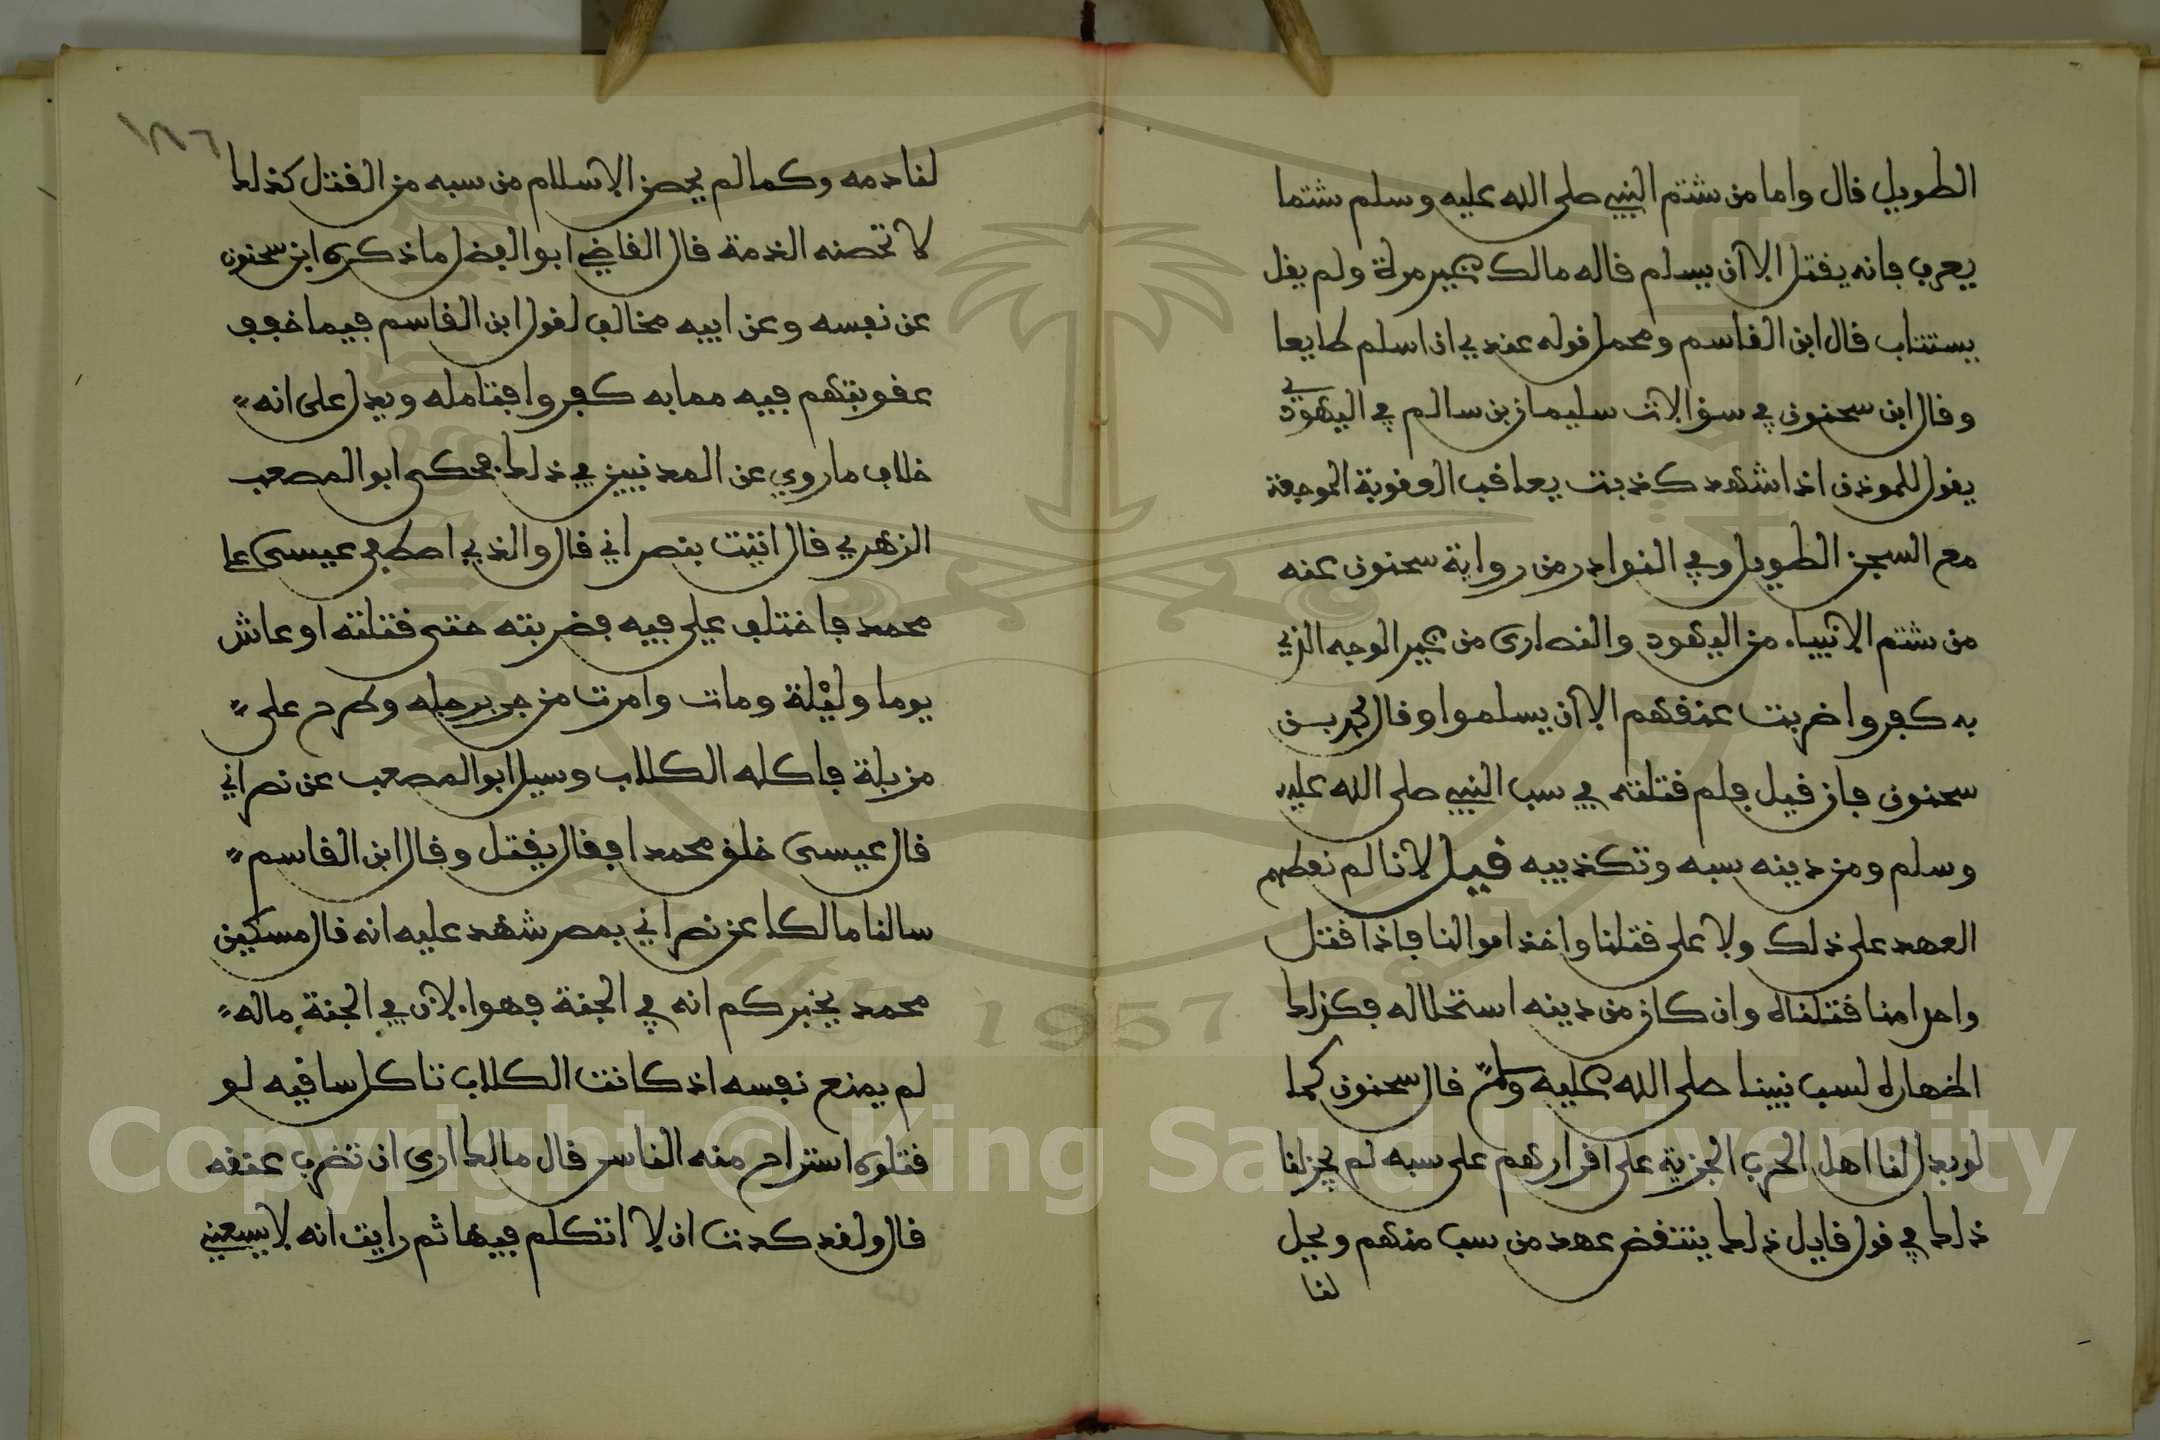 الطويل قال واما من شتم النبي صلى الله عليه وسلم شتما
يعرف فانه يقتل الا ان يسلم قاله مالك غير مرة ولم يقل
يستتاب قال ابن القاسم ومحمل قوله عندي ان اسلم طايعا
وقال ابن سحنون في سؤالات سليمان بن سالم في اليهودي
يقول للموذن اذا تشهد كذبت يعاقب العقوبة الموجعة
مع السجن الطويل وفي النوادر من رواية سحنون عنه
من شتم الانبياء من اليهود والنصارى من غير الوجه الذي
به كفروا ضربت عنقهم الا ان يسلموا وقال محمد بن
سحنون فان قيل فلم قتلته في سب النبي صلى الله عليه
وسلم ومن دينه سبه وتكذيبه قيل لانا لم نعطهم
العهد على ذلك ولا على قتلنا واخذ اموالنا فاذا قتل
واحدا منا قتلناه وان كان من دينه استحلاله فكذلك
اظهاره لسب نبينا صلى الله عليه وسلم قال سحنون كما
لو بذل لنا اهل الحرب الجزية على اقرارهم على سبه لم يجز لنا
ذلك في قول قايل ذلك ينتقض عهد من سب منهم ويحل
لنا
١٨٦
لنا دمه وكما لم يحصن الاسلام من سبه من القتل كذلك
لا تحصنه الذمة قال القاضي ابو الفضل ما ذكره ابن سحنون
عن نفسه وعن ابيه مخالف لقول ابن القاسم فيما خفف
عقوبتهم فيه مما به كفروا فتامله ويدل على انه
خلاف ما روي عن المدنيين في ذلك فحكى ابو المصعب
الزهري قال اتيت بنصراني قال والذي اصطفى عيسى على
محمد فاختلف علي فيه فضربته حتى قتلته او عاش
يوما وليلة ومات وامرت من جر برجله وطرح على
مزبلة فاكله الكلاب وسيل ابو المصعب عن نصراني
قال عيسى خلق محمدا فقال يقتل وقال ابن القاسم
سالنا مالكا عن نصراني بمصر شهد عليه انه قال مسكين
محمد يخبركم انه في الجنة فهو الان في الجنة ماله
لم يمنع نفسه اذ كانت الكلاب تاكل ساقيه لو
قتلوه استراح منه الناس قال مالك ارى ان تضرب عنقه
قال ولقد كدت ان لا اتكلم فيها ثم رايت انه لا يسعني
Copyright © King Saud University
1957